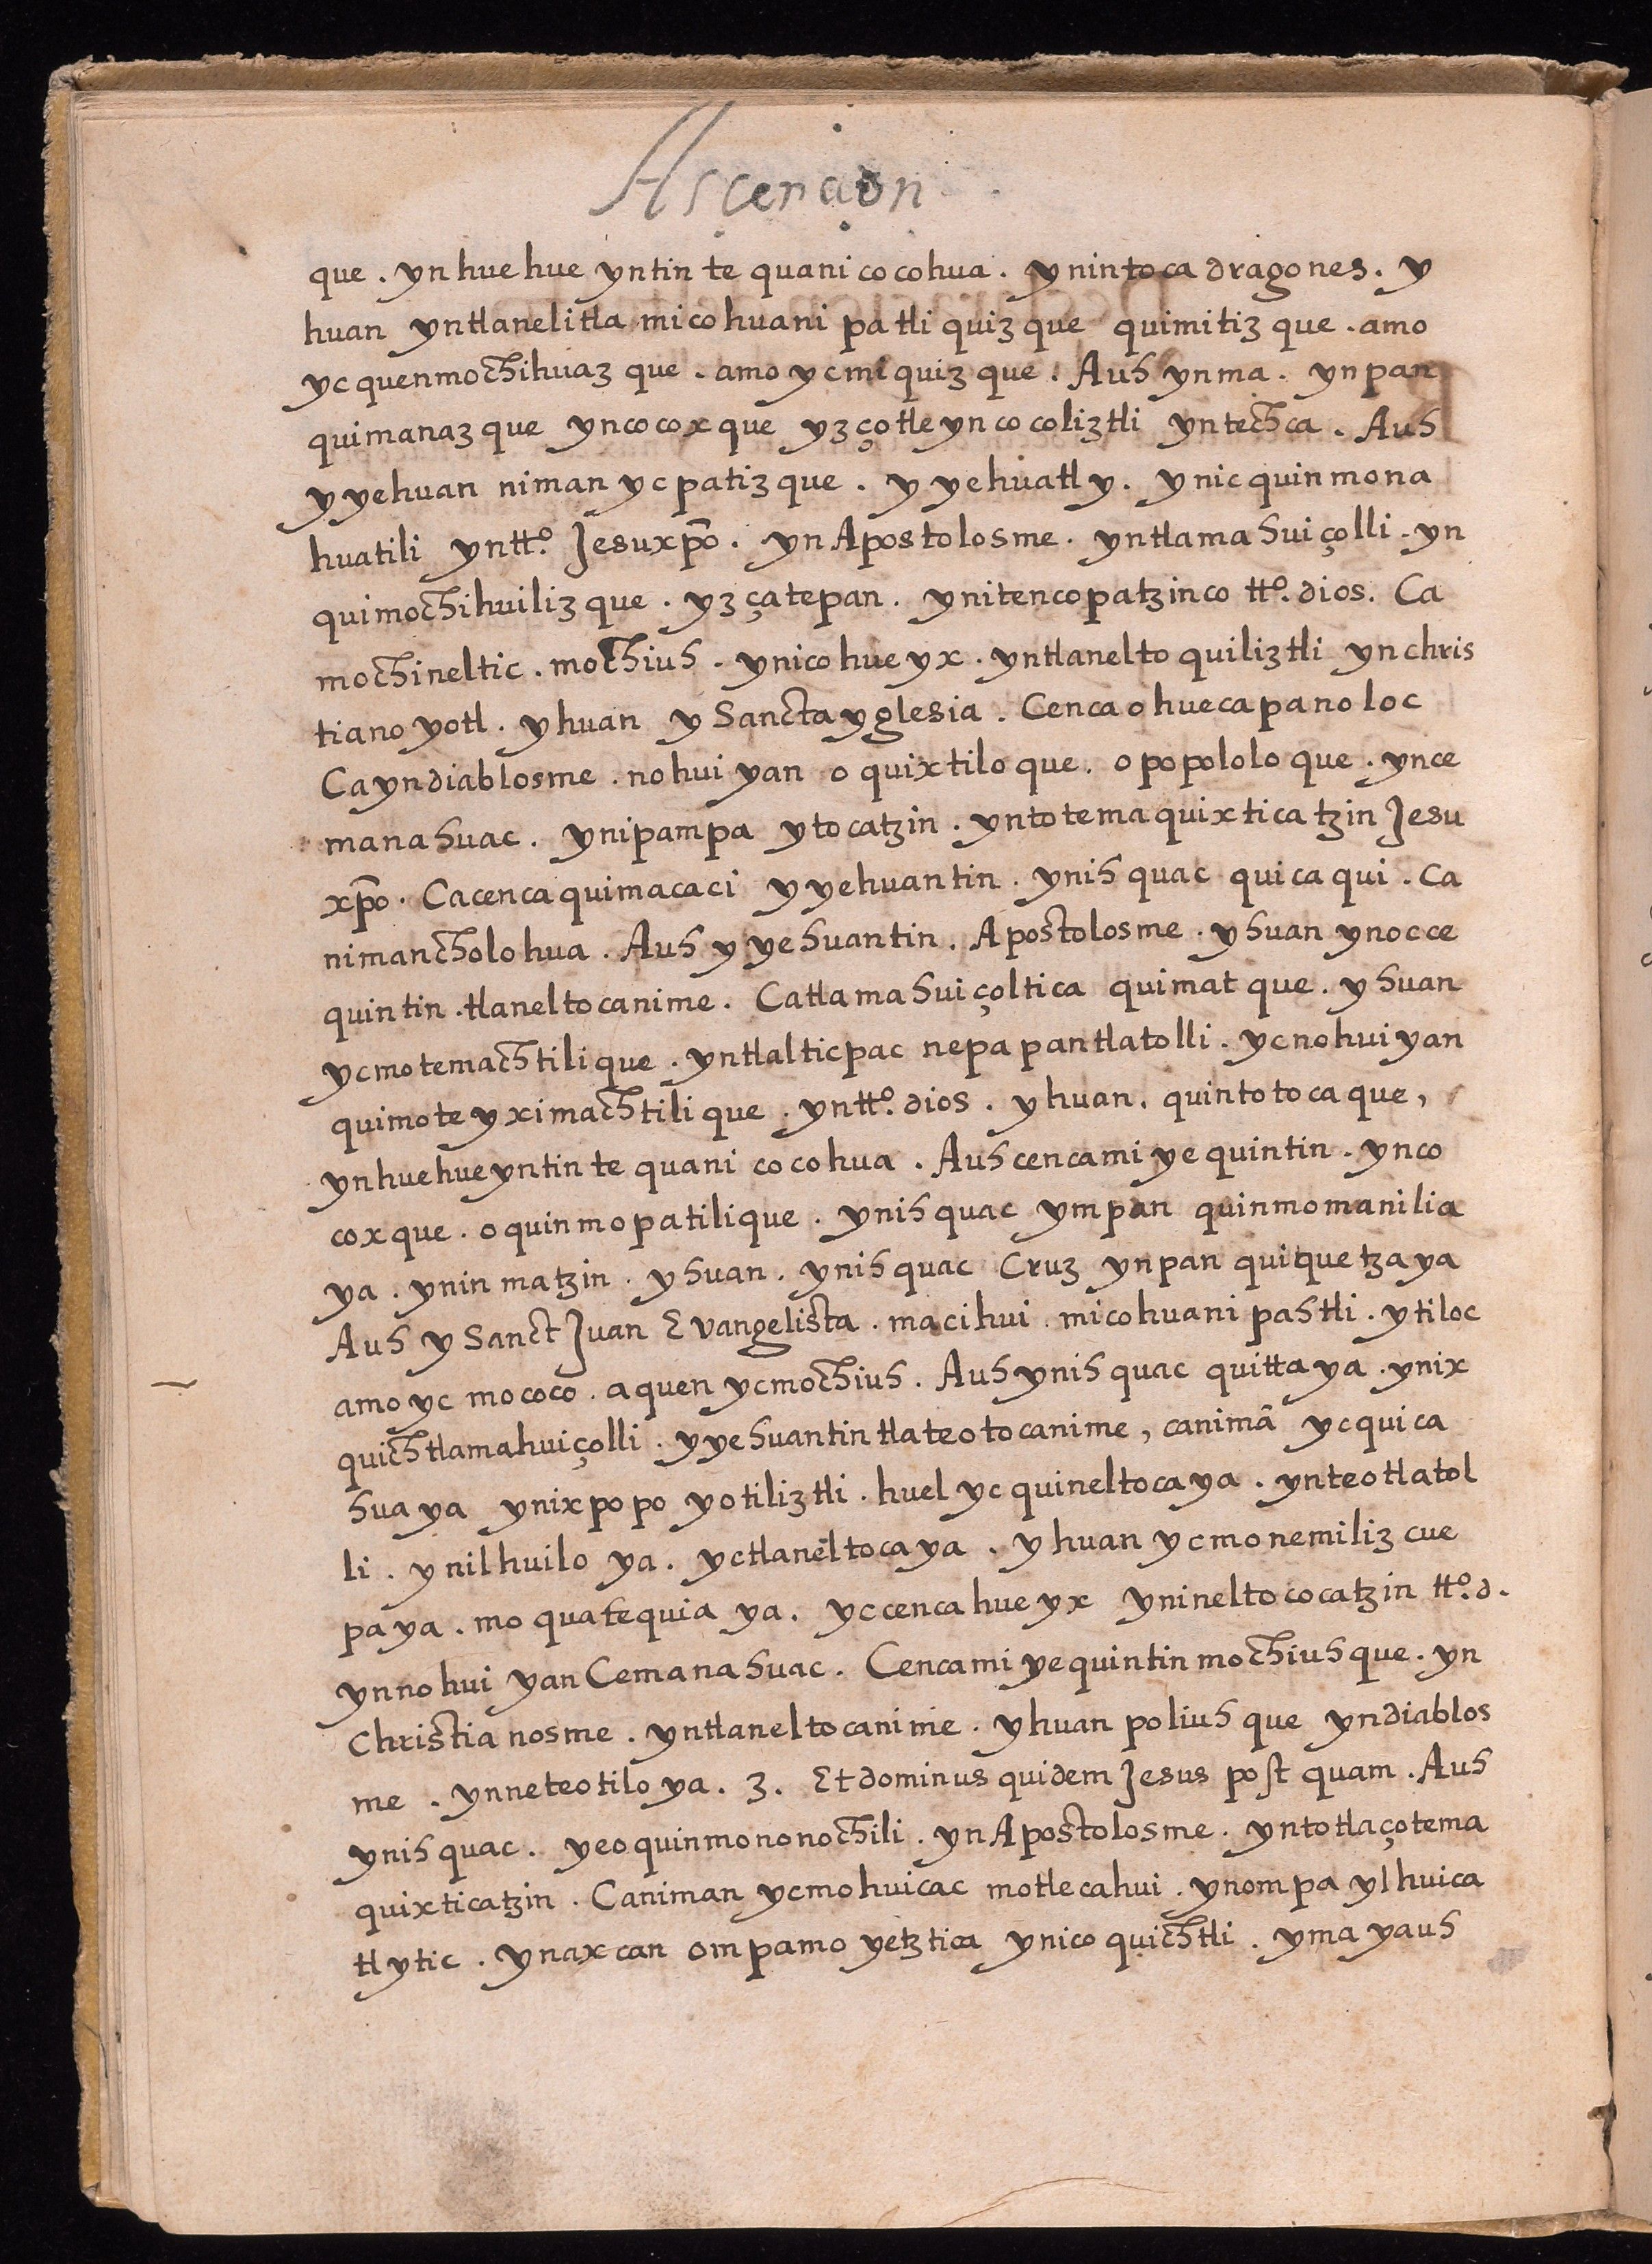 Ascencion
que. yn huehueyntin tequani cocohua. ynintoca dragones. y
huan yntlanelitla micohuani patli quizque quimitiz que. amo
yc quenmochihuaz que. amo yc miquiz que. Auh ynma. ynpan
quimanaz que yncocoxque yz çotle yn cocoliztli yntechca. Auh
yyehuan niman yc patizque. yyehuatl y. ynic quinmona
huatili yntto. Jesuxpo. yn Apostolosme. yntlamahuiçolli. yn
quimochihuilizque. yz çatepan. ynitencopatzinco tto. dios. Ca
mochineltic. mochiuh. ynicohueyx. yntlaneltoquiliztli ynchris
tianoyotl. yhuan y Sancta yglesia. Cenca ohuecapanoloc
Ca yndiablosme. nohuiyan oquixtiloque. opopololoque. ynce
manahuac. ynipampa ytocatzin. yntotemaquixticatzin Jesu
xpo. Cacenca quimacaci yyehuantin. ynihquac quicaqui. Ca
nimancholohua. Auh yyehuantin. Apostolosme. yhuan ynocce
quintin. tlaneltocanime. Catlamahuiçoltica quimatque. yhuan
ycmotemachtilique. yntlalticpac nepapantlatolli. ycnohuiyan
quimoteyximachtilique. yntto. dios. yhuan. quintotocaque,
ynhuehueyntin tequani cocohua. Auh cencamiyequintin. ynco
coxque. oquinmopatilique. ynihquac ympan quinmomanilia
ya. yninmatzin. yhuan. ynihquac Cruz ynpan quiquetzaya
Auh y Sanct Juan Evangelista. macihui. micohuani pahtli. ytiloc
amo yc mococo. aquen ycmochiuh. Auh ynihquac quittaya. ynix
quichtlamahuiçolli. yyehuantin tlateotocanime, canimã ycquica
huaya ynixpopoyotiliztli. huel yc quineltocaya. ynteotlatol
li. ynilhuiloya. yctlaneltocaya. yhuan ycmonemilizcue
paya. moquatequiaya. yccenca hueyx ynineltococatzin tto. d.
ynnohuiyan Cemanahuac. Cencamiyequintin mochiuhque. yn
Christianosme. yntlaneltocanime. yhuan poliuhque yndiablos
me. ynneteotiloya. 3. Et dominus quidem Jesus post quam. Auh
ynihquac. yeoquinmononochili. yn Apostolosme. yntotlaçotema
quixticatzin. Caniman ycmohuicac motlecahui. ynompa ylhuica
tlytic. ynaxcan ompamoyetztica ynicoquichtli. yma yauh